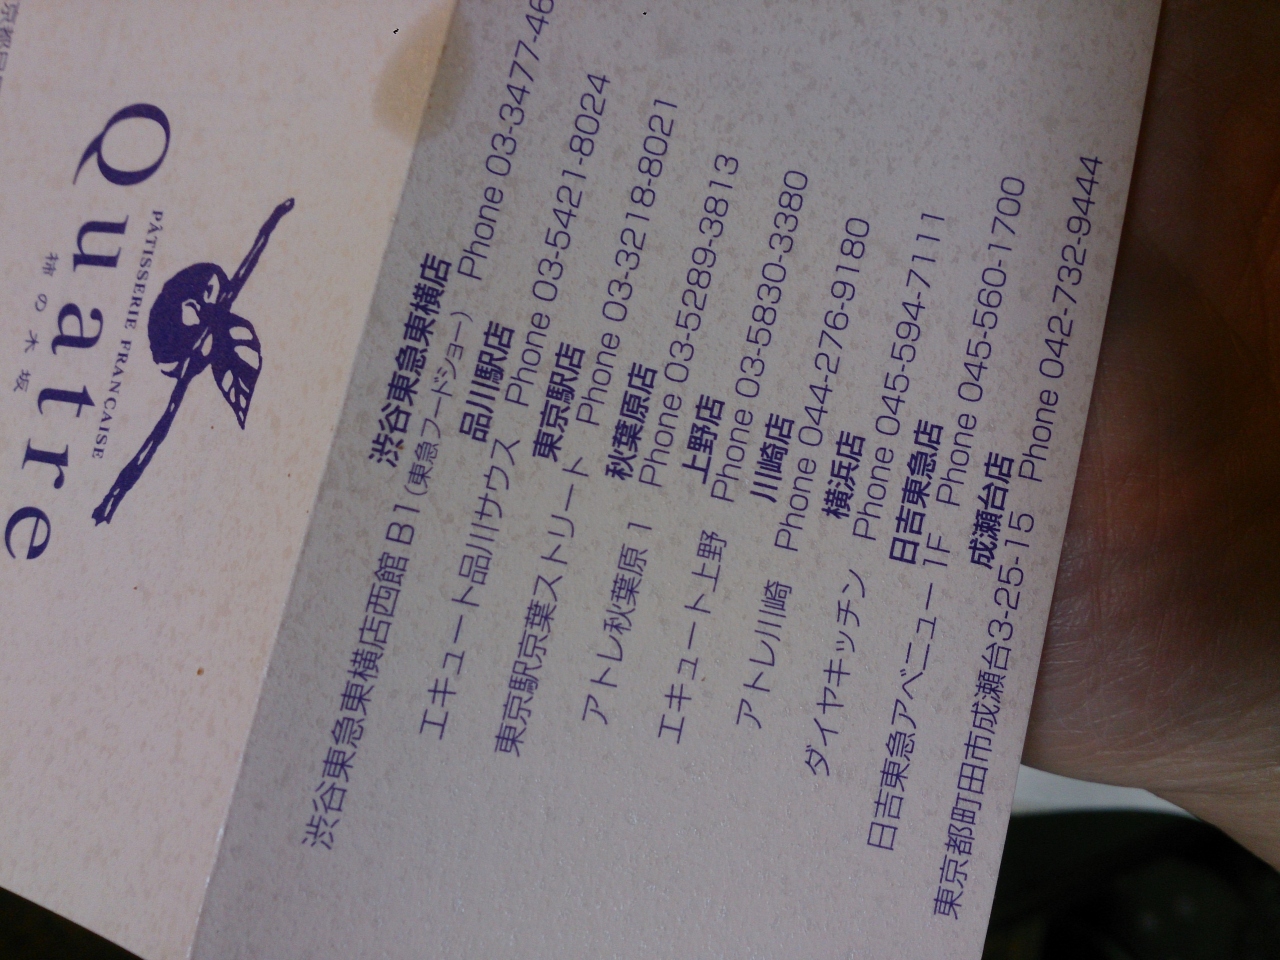 Quatre
PÂTISSERIE FRANCAISE
柿の木坂
渋谷東急東横店
渋谷東急東横店西館 B1(東急フードショー) Phone 03-3477-46
品川駅店
エキュート品川サウス Phone 03-5421-8024
東京駅店
東京駅京葉ストリート Phone 03-3218-8021
秋葉原店
アトレ秋葉原 1 Phone 03-5289-3813
上野店
エキュート上野 Phone 03-5830-3380
川崎店
アトレ川崎 Phone 044-276-9180
横浜店
ダイヤキッチン Phone 045-594-7111
日吉東急店
日吉東急アベニュー 1F Phone 045-560-1700
成瀬台店
東京都町田市成瀬台3-25-15 Phone 042-732-9444